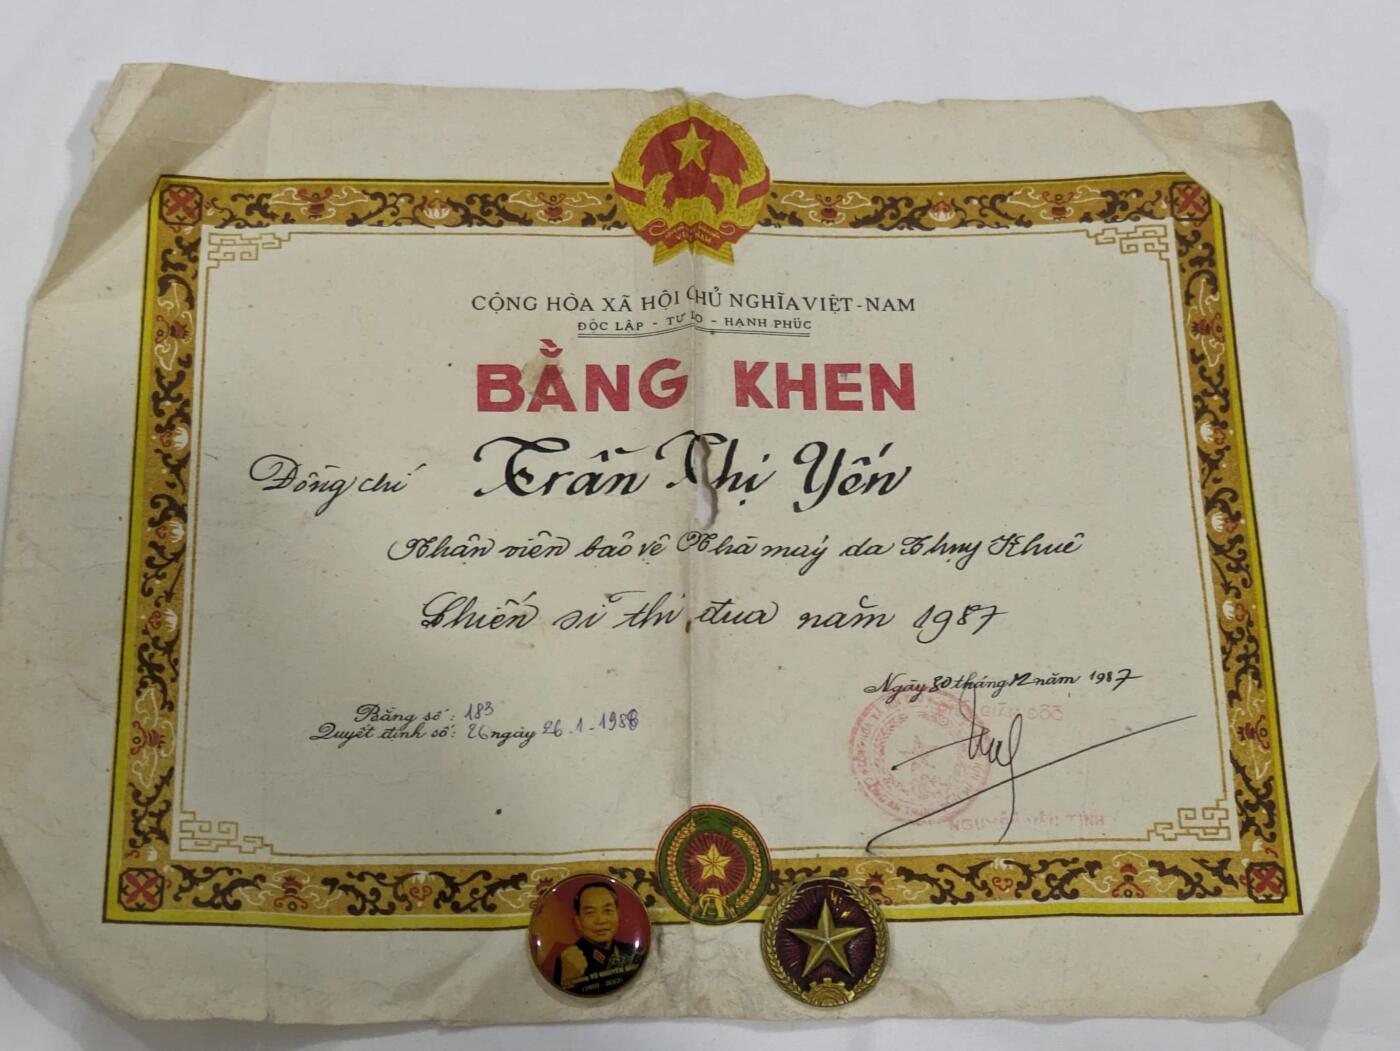 VIỆT NAM
CỘNG HÒA XÃ HỘI CHỦ NGHĨA VIỆT-NAM
ĐỘC LẬP - TỰ DO - HẠNH PHÚC
BẰNG KHEN
Đồng chí Trần Thị Yến
Nhân viên bảo vệ Nhà máy da Thụy Khuê
Chiến sĩ thi đua năm 1987
Ngày 30 tháng 12 năm 1987
Bằng số: 183
Quyết định số: 26 ngày 26-1-1988
VÕ NGUYÊN GIÁP